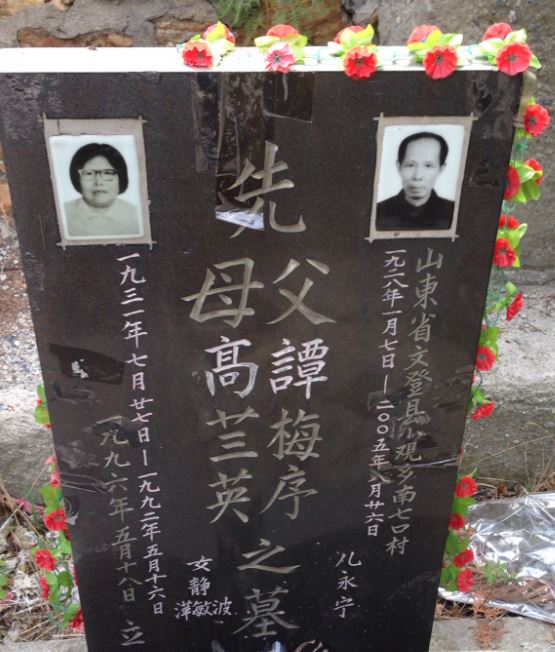 山東省文登县小观乡南七口村
一九二八年一月七日—二00五年八月廿六日
儿永宁
先
父譚梅序之墓
母高兰英
女静萍敏波
一九三一年七月廿七日—一九九二年五月十六日
一九九六年五月十八日立